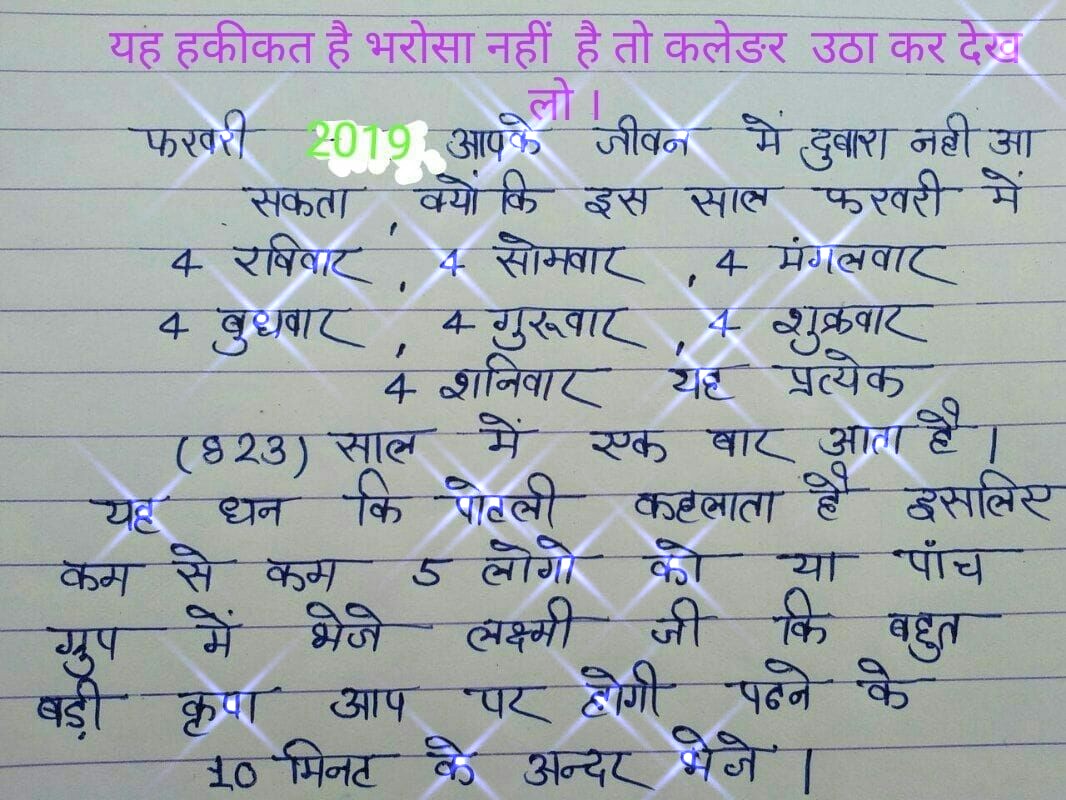 यह हकीकत है भरोसा नहीं है तो कलेङर उठा कर देख
लो ।
फरवरी 2019 आपके जीवन में दुबारा नही आ
सकता , क्यों कि इस साल फरवरी में
4 रविवार , 4 सोमवार , 4 मंगलवार
4 बुधवार , 4 गुरूवार , 4 शुक्रवार
4 शनिवार यह प्रत्येक
(823) साल में एक बार आता है ।
यह धन कि पोटली कहलाता है इसलिए
कम से कम 5 लोगो को या पाँच
ग्रुप में भेजे लक्ष्मी जी कि बहुत
बड़ी कृपा आप पर होगी पढने के
10 मिनट के अन्दर भेजे ।